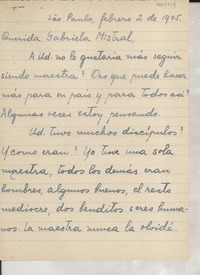 São Paulo, febrero 2 de 1945.
Querida Gabriela Mistral,
A Ud. no le gustaría más seguir
siendo maestra? Creo que puede hacer
más para su país y para todos así?
Algumas veces estoy pensando.
Ud. tuvo muchos discípulos?
Y como eran? Yo tuve una sola
maestra, todos los demás eran
hombres, algunos buenos, el resto
mediocre, dos benditos seres huma-
nos. La maestra nunca la olvidé.